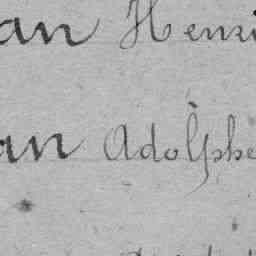 an Henri
an Adolphe